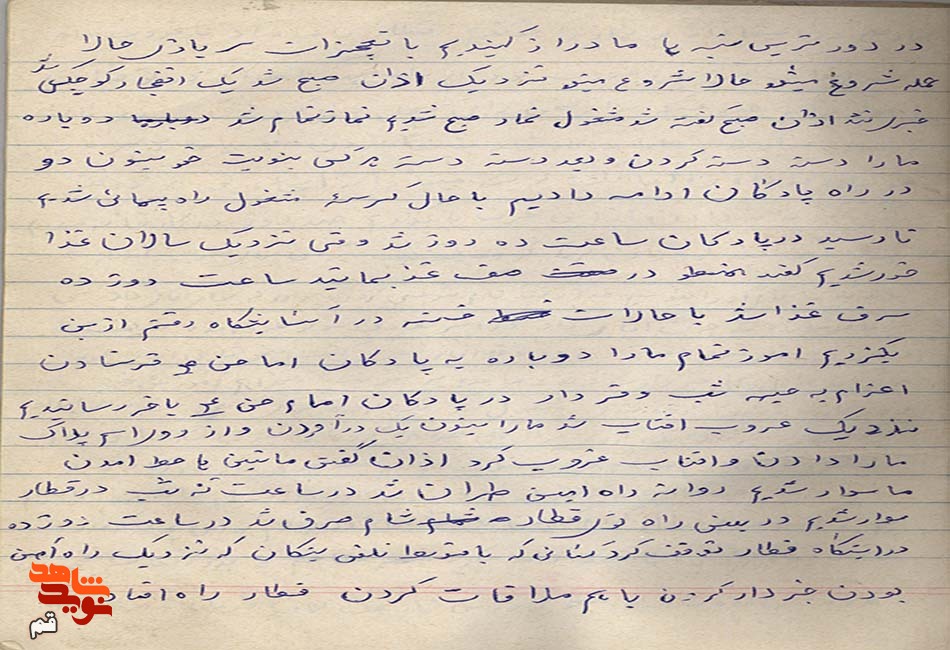 در دور ترین سنبه ما مادراز کیندیم با تجهیزات سر بازی حالا
حمله شروع میشو حالا شروع میشو نزدیک اذان صبح شد یک انفجار کوچکی شد
خبری نشد اذان صبح گفته شد مشغول نماز صبح شدیم نماز تمام شد دوباره
ما را دسته دسته کردن و بعد دسته دسته هر کس بنوبت خو بیتون دو
در راه پادگان ادامه دادیم با حال گرسنه مشغول راه پیمائی شدیم
تا رسید در پادگان ساعت ده روز شد وقتی نزدیک سالان غذا
خوری شدیم گفتند در صف غذ بمانید ساعت دوزده
سرف غذا شد با حالات خسته در آسایشگاه رفتم ازین
بگزریم امروز تمام ما را دوباره به پادگان امام حسن فرستادن
اعزام به جبهه شب و فردار در پادگان امام حسن باخر رساندیم
نزدیک غروب افتاب شد ما را بیتون یک درآوردن واز دور اسم پلاک
ما را دادن و افتاب غروب کرد اذان گفتن ماشین ها حط امدن
ما سوار شدیم روانه راه اهن طهران شد در ساعت نه شب در قطار
سوار شدیم در بعنی راه توی قطار شام صرف شد در ساعت دوزده
در ایتگاه قطار توقف کرد کسانی که با توسط تلفن بتگان که نزدیک راه آهن
بودن خبر دار کردن با هم ملاقات کردن قطار راه افتاد
نوید شاهد
قم